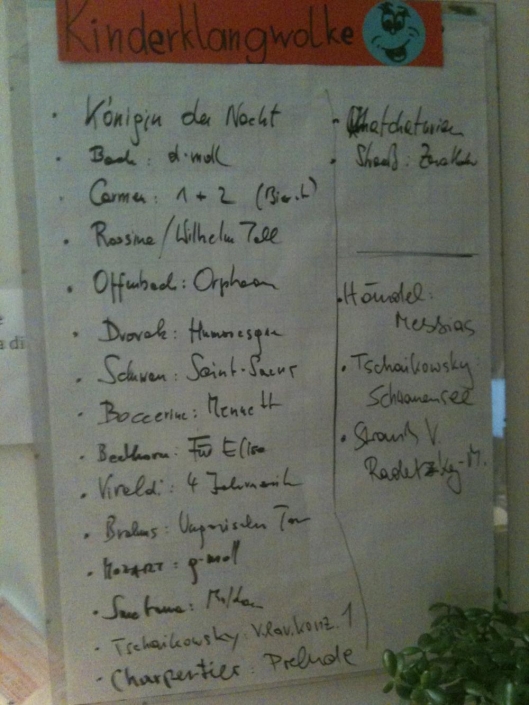 Kinderklangwolke
· Königin der Nacht
· Bach: d-moll
· Carmen: 1 + 2 (Bizet)
· Rossini/Wilhelm Tell
· Offenbach: Orpheus
· Dvorak: Humoresque
· Schwan: Saint-Saens
· Boccerini: Menuett
· Beethoven: Für Elise
· Vivaldi: 4 Jahreszeit
· Brahms: Ungarischer Tanz
· MOZART: g-moll
· Smetana: Moldau
· Tschaikowsky: Klav.konz. 1
· Charpentier: Prelude
· Khatchaturian
· Strauß: Zarath
· Händel:
Messias
· Tschaikowsky:
Schwanensee
· Strauß V.
Radetzky-M.